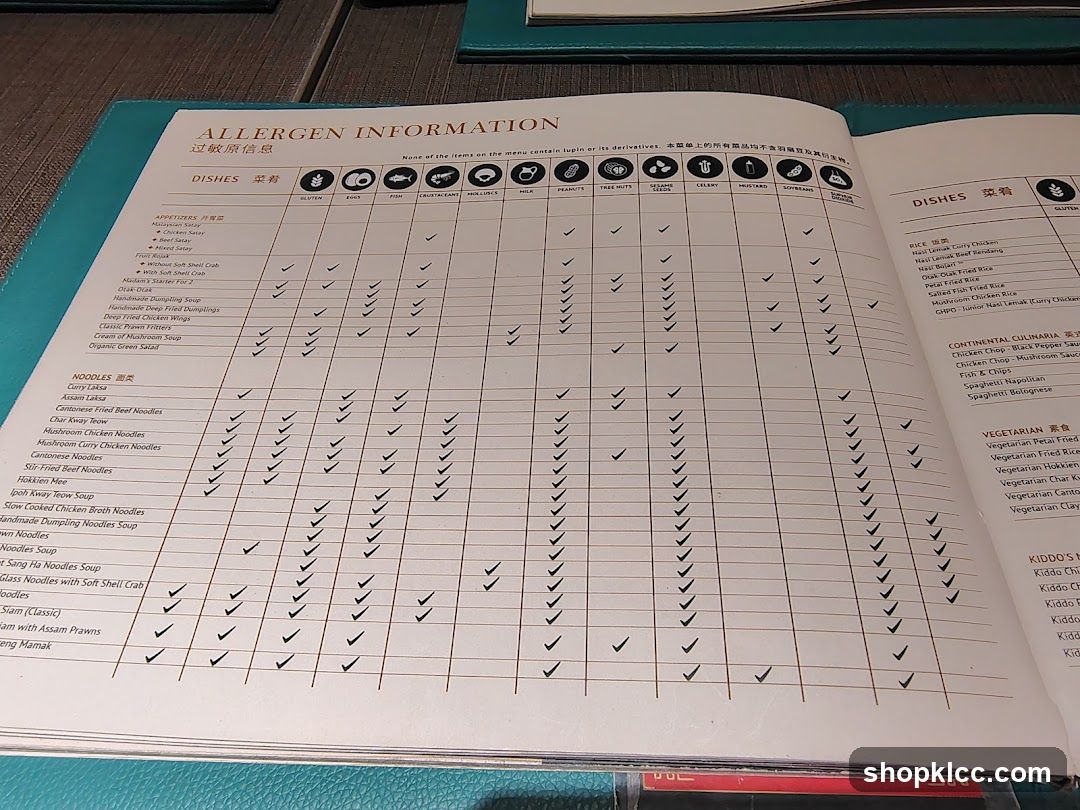 ALLERGEN INFORMATION
过敏原信息
None of the items on the menu contain lupin or its derivatives. 本菜单上的所有菜品均不含羽扇豆及其衍生物。
DISHES 菜肴
GLUTEN
EGGS
FISH
CRUSTACEANS
MOLLUSCS
MILK
PEANUTS
TREE NUTS
SESAME SEEDS
CELERY
MUSTARD
SOYBEANS
SULPHUR DIOXIDE
APPETIZERS 开胃菜
Malaysian Satay
Chicken Satay
Beef Satay
Mixed Satay
Fruit Rojak
Without Soft Shell Crab
With Soft Shell Crab
Madam's Starter For 2
Otak-Otak
Handmade Dumpling Soup
Handmade Deep Fried Dumplings
Deep Fried Chicken Wings
Classic Prawn Fritters
Cream of Mushroom Soup
Organic Green Salad
NOODLES 面类
Curry Laksa
Assam Laksa
Cantonese Fried Beef Noodles
Char Kway Teow
Mushroom Chicken Noodles
Mushroom Curry Chicken Noodles
Cantonese Noodles
Stir-Fried Beef Noodles
Hokkien Mee
Ipoh Kway Teow Soup
Slow Cooked Chicken Broth Noodles
Handmade Dumpling Noodles Soup
Noodles
Noodles Soup
Sang Ha Noodles Soup
Glass Noodles with Soft Shell Crab
Siam (Classic)
with Assam Prawns
Mamak
DISHES 菜肴
GLUTEN
RICE 饭类
Nasi Lemak Curry Chicken
Nasi Lemak Beef Rendang
Nasi Bojari
Otak-Otak Fried Rice
Petai Fried Rice
Salted Fish Fried Rice
Mushroom Chicken Rice
GHPO - Junior Nasi Lemak (Curry Chicken
CONTINENTAL CULINARIA
Chicken Chop - Black Pepper
Chicken Chop - Mushroom
Fish & Chips
Spaghetti Napolitan
Spaghetti Bolognese
VEGETARIAN 素食
Vegetarian Petai Fried
Vegetarian Fried Rice
Vegetarian Hokkien
Vegetarian Char
Vegetarian
Vegetarian
KIDDO'S
Kiddo
Kiddo
Kiddo
Kiddo
shopklcc.com